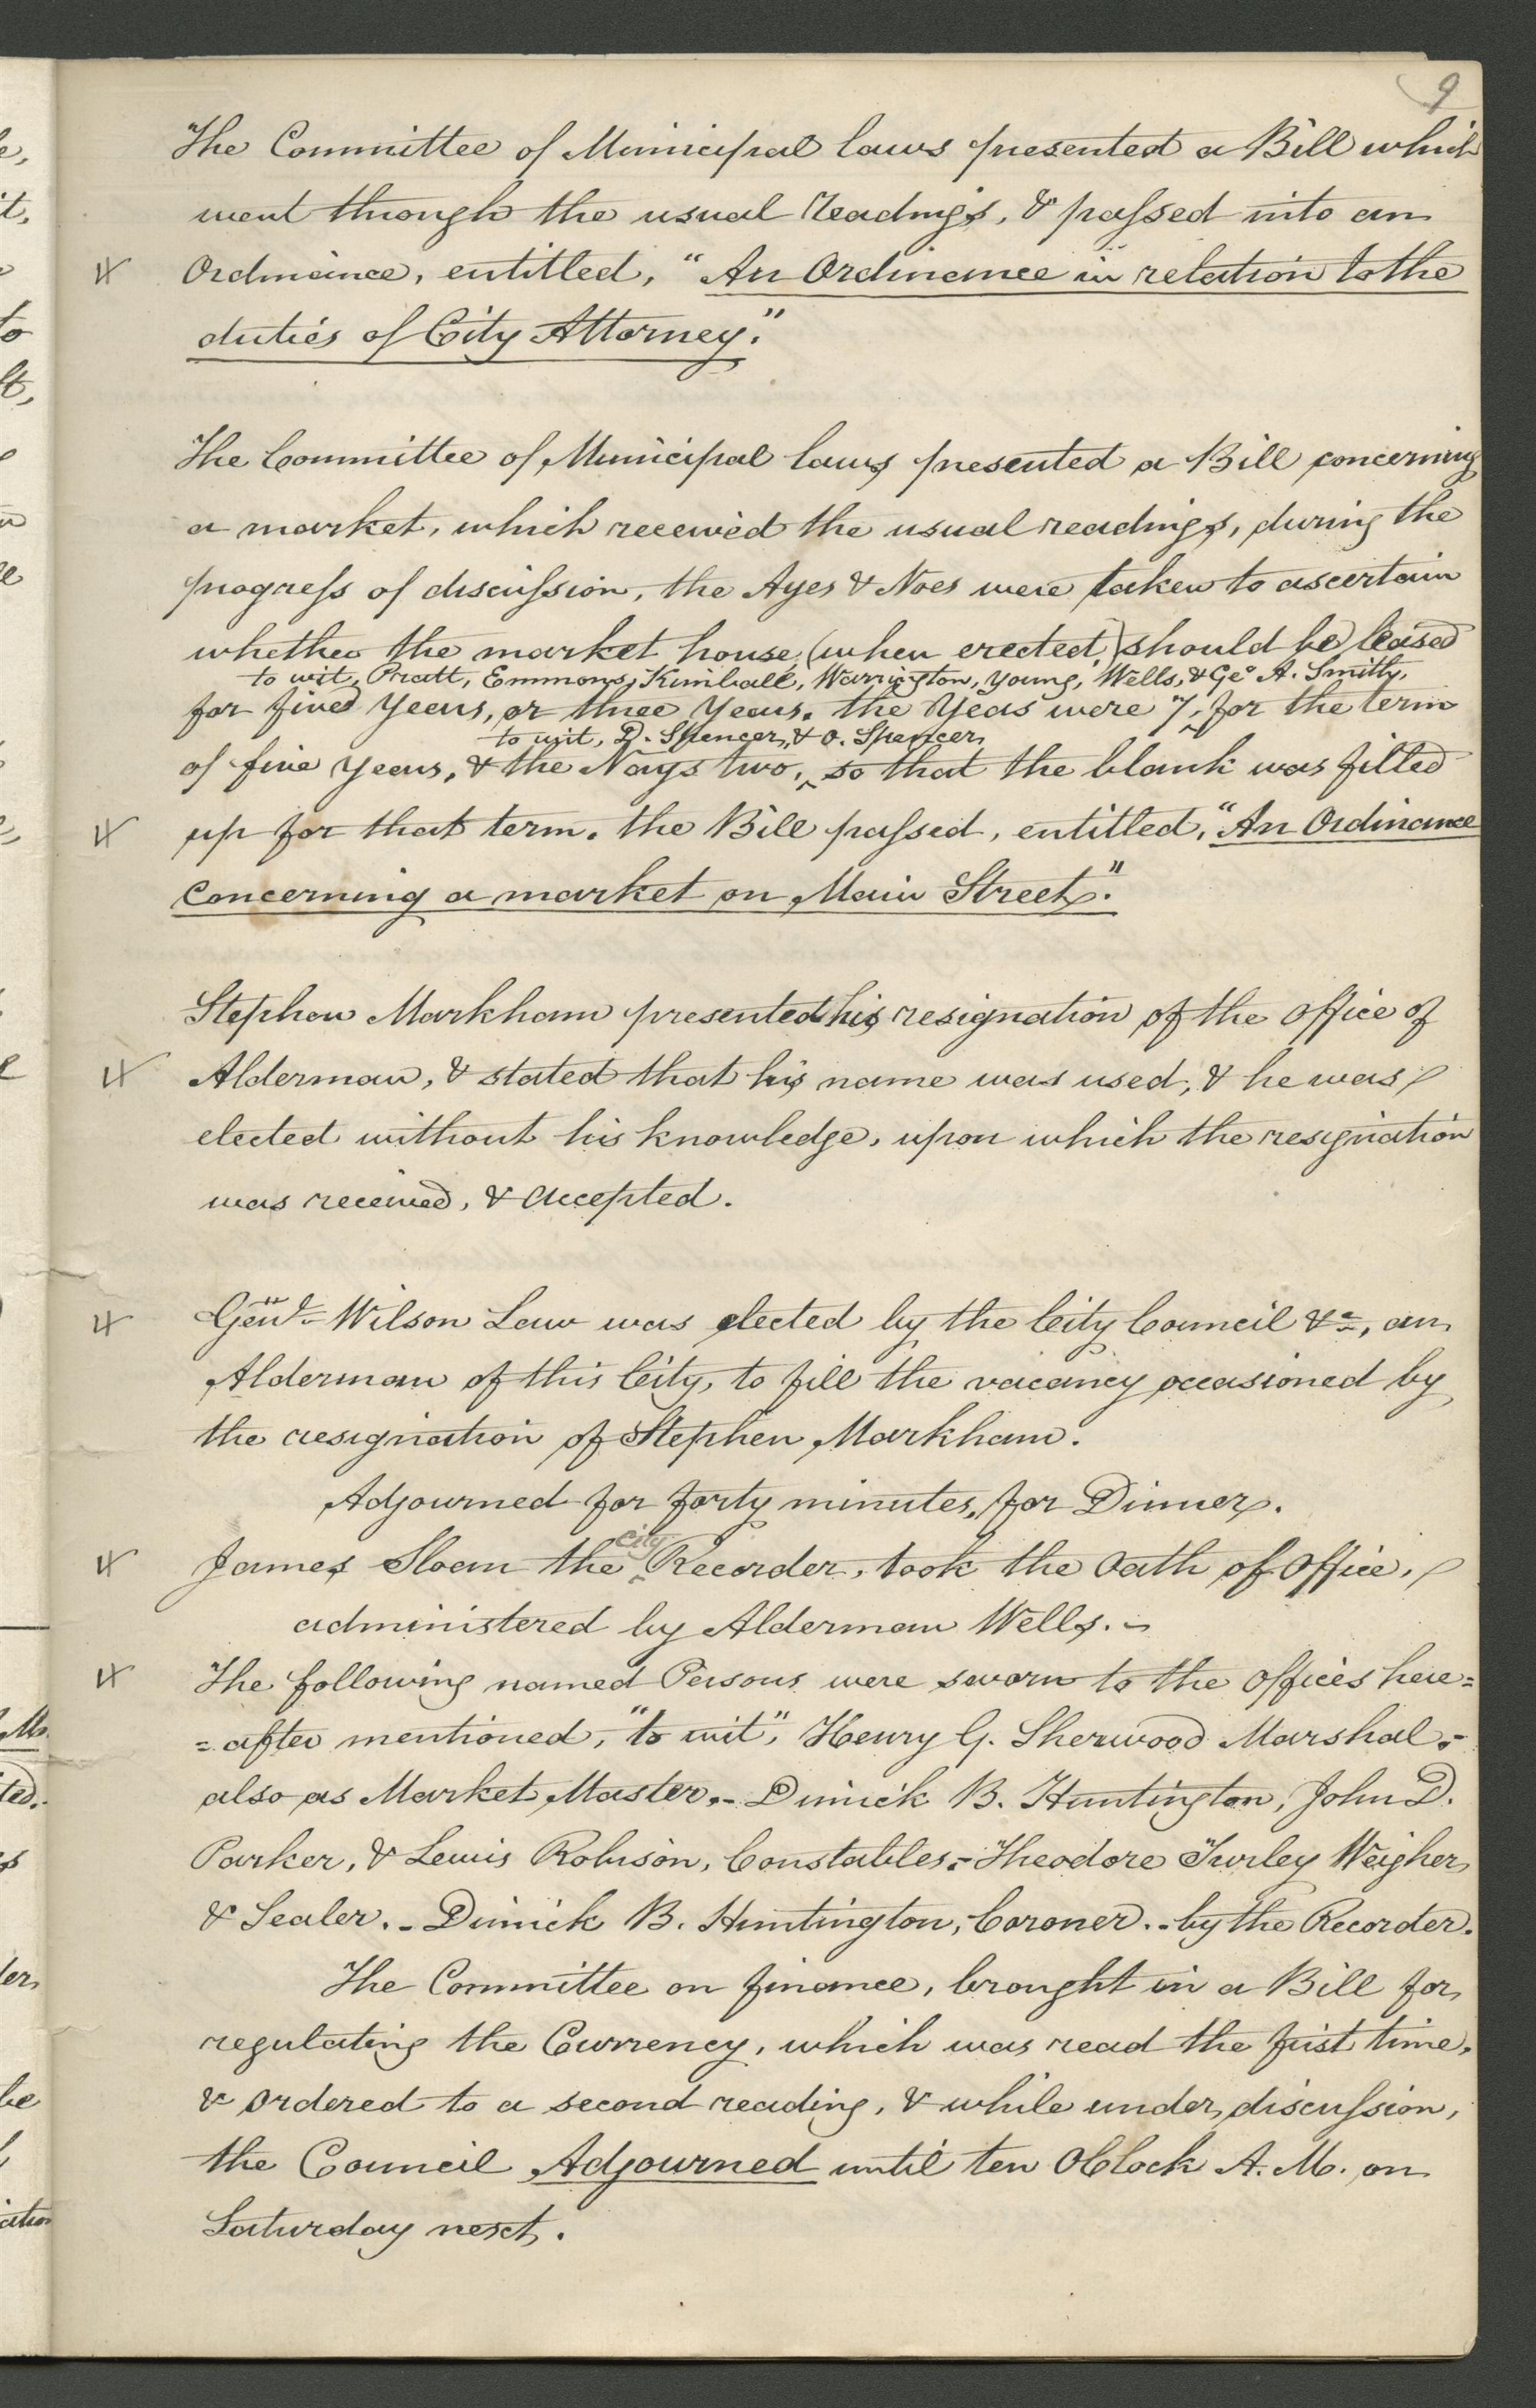 9
The Committee of Municipal laws presented a Bill which
went through the usual Readings, & passed into an
Ordinance, entitled, "An Ordinance in relation to the
duties of City Attorney."
The Committee of Municipal laws presented a Bill concerning
a market, which received the usual readings, during the
progress of discussion, the Ayes & Noes were taken to ascertain
whether the market house, (when erected,) should be leased
to wit, Pratt, Emmons, Kimball, Warrington, Young, Wells, & Geo A. Smith,
for five Years, or three Years. the Yeas were 7, for the term
to wit, D. Spencer, & O. Spencer,
of five Years, & the Nays two, so that the blank was filled
up for that term. the Bill passed, entitled, "An Ordinance
Concerning a market on Main Street."
Stephen Markham presented his resignation of the office of
Alderman, & stated that his name was used, & he was
elected without his knowledge, upon which the resignation
was received, & accepted.
Genl Wilson Law was elected by the City Council &c, an
Alderman of this City, to fill the vacancy occasioned by
the resignation of Stephen Markham.
Adjourned for forty minutes, for Dinner.
city
James Sloan the Recorder, took the Oath of Office,
administered by Alderman Wells. -
The following named Persons were sworn to the offices here=
=after mentioned, "to wit", Henry G. Sherwood Marshal,-
also as Market Master,- Dimick B. Huntington, John D.
Parker, & Lewis Robison, Constables,- Theodore Turley Weigher
& Sealer.- Dimick B. Huntington, Coroner.- by the Recorder.
The Committee on finance, brought in a Bill for
regulating the Currency, which was read the first time,
& ordered to a second reading, & while under discussion,
the Council Adjourned until ten OClock A. M. on
Saturday next.